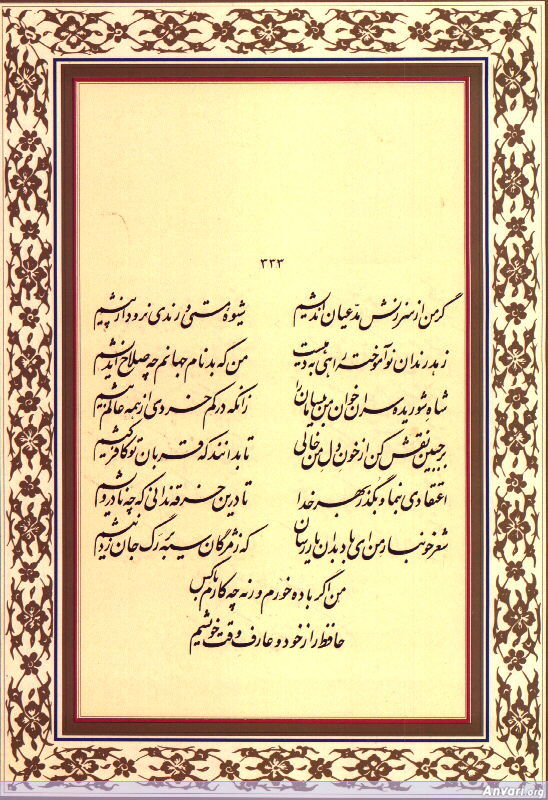 ۳۳۳
گر من از سرزنش مدّعیان اندیشم شیوهٔ مستی و رندی نرود از پیشم
زهد رندان نوآموخته راهی به دهیست من که بدنام جهانم چه صلاح اندیشم
شاه شوریده سران خوان من بی‌سامان را زانکه در کم خردی از همه عالم بیشم
بر جبین نقش کن از خون دل من خالی تا بدانند که قربان تو کافر کیشم
اعتقادی بنما و بگذر بهر خدا تا درین خرقه ندانی که چه نادرویشم
شعر خونبار من ای باد بدان یار رسان که ز مژگان سیه بر رگ جان زد نیشم
من اگر باده خورم ورنه چه کارم با کس
حافظ راز خود و عارف وقت خویشم
Anvari.org